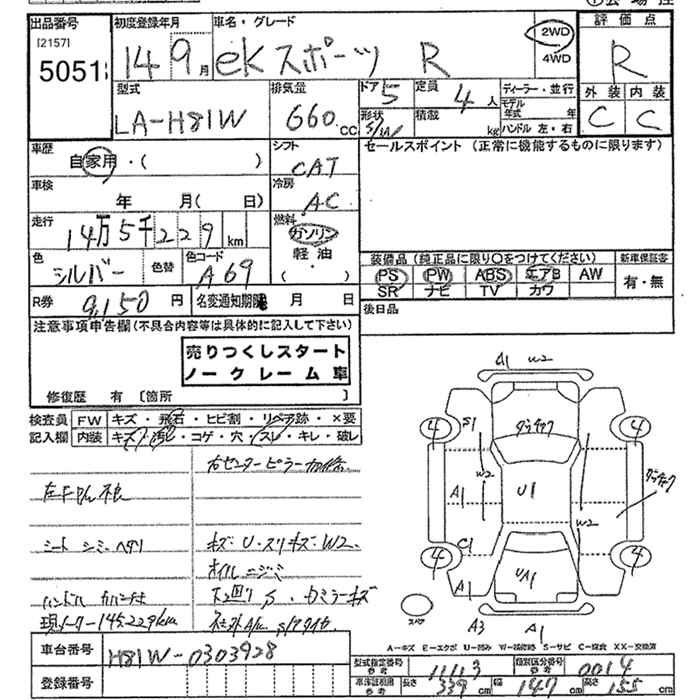 出品番号
[2157]
5051
初度登録年月
14 9月
車名・グレード
eKスポーツ R
2WD
4WD
評価点
R
外装 内装
C C
型式
LA-H81W
排気量
660 cc
ドア 5
形状 S/W
定員 4人
積載 kg
ディーラー・並行
モデル年式 年
ハンドル 左・右
車歴
自家用・( )
シフト
CAT
セールスポイント (正常に機能するものに限ります)
車検
年 月(日)
冷房
AC
走行
14万5千229 km
燃料
ガソリン
軽油
( )
色
シルバー
色替
色コード
A69
装備品 (純正品に限り○をつけてください)
新車保証書
PS PW ABS エアB AW
SR ナビ TV カワ
有・無
R券
9,150 円
名変通知期限 月 日
後日品
注意事項申告欄(不具合内容等は具体的に記入して下さい)
売りつくしスタート
ノークレーム車
修復歴 有 [箇所 ]
検査員
記入欄
FW キズ・飛石・ヒビ割・リペア跡・×要
内装 キズ・汚れ・コゲ・穴・スレ・キレ・破レ
右センターピラー
左F 不良
シート シミ ヘタリ
キズ・U・スリキズ・W2
オイルニジミ
ハンドル カバー
下回り S・ミラーキズ
現メーター145,229km
A1 W2
4 4
S1
W2
A1
U1
W2
C1
4 4
A1
UA1
A3 A1
スペア
A=キズ E=エクボ U=凹み W=補修跡 S=サビ C=腐食 XX=交換済
車台番号
H81W-0303928
登録番号
型式指定番号
参考
11113
類別区分番号
参考
0014
車体証明欄
参考
長さ 339 cm 幅 147 cm 高さ 155 cm